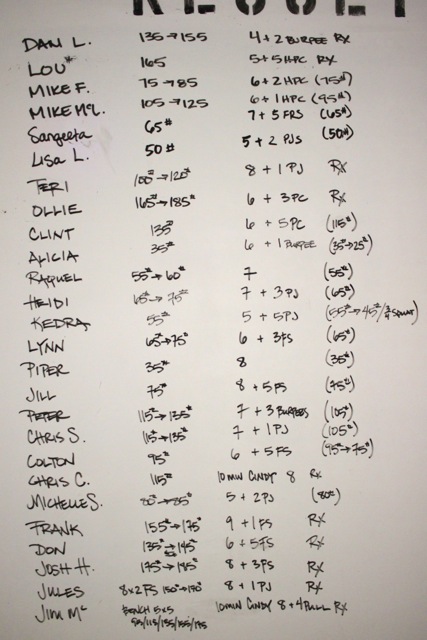 RESULT
DAN L. 135→155 4+2 BURPEE RX
LOU* 165 5+5 HPC RX
MIKE F. 75→85 6+2 HPC (75#)
MIKE McL. 105→125 6+1 HPC (95#)
Sangeeta 65# 7+5 FRS (65#)
Lisa L. 50# 5+2 PJs (50#)
TERI 100#→120# 8+1 PJ RX
OLLIE 165#→185# 6+3PC RX
CLINT 135# 6+5PC (115#)
ALICIA 35# 6+1 BURPEE (35#→25#)
RAQUEL 55#→60# 7 (55#)
HEIDI 65#→75# 7+3PJ (65#)
KEDRA 55# 5+5PJ (55#→45#/3/4 SQUAT)
LYNN 65#→75# 6+3FS (65#)
PIPER 35# 8 (35#)
JILL 75# 8+5FS (75#)
PETER 115#→135# 7+3 BURPEES (105#)
CHRIS S. 115#→135# 7+1PJ (105#)
COLTON 95# 6+5FS (95#→75#)
CHRIS C. 115# 10 MIN CINDY 8 RX
MICHELLE S. 80#→85# 5+2PJ (80#)
FRANK 155#→175# 9+1FS RX
DON 135#→145# 6+5FS RX
JOSH H. 175#→185# 8+3FS RX
JULES 8x2 FS 150#→170# 8+1PJ RX
Jim Mc BENCH 5x5 10MIN CINDY 8+4 PULL RX
95/115/135/155/175